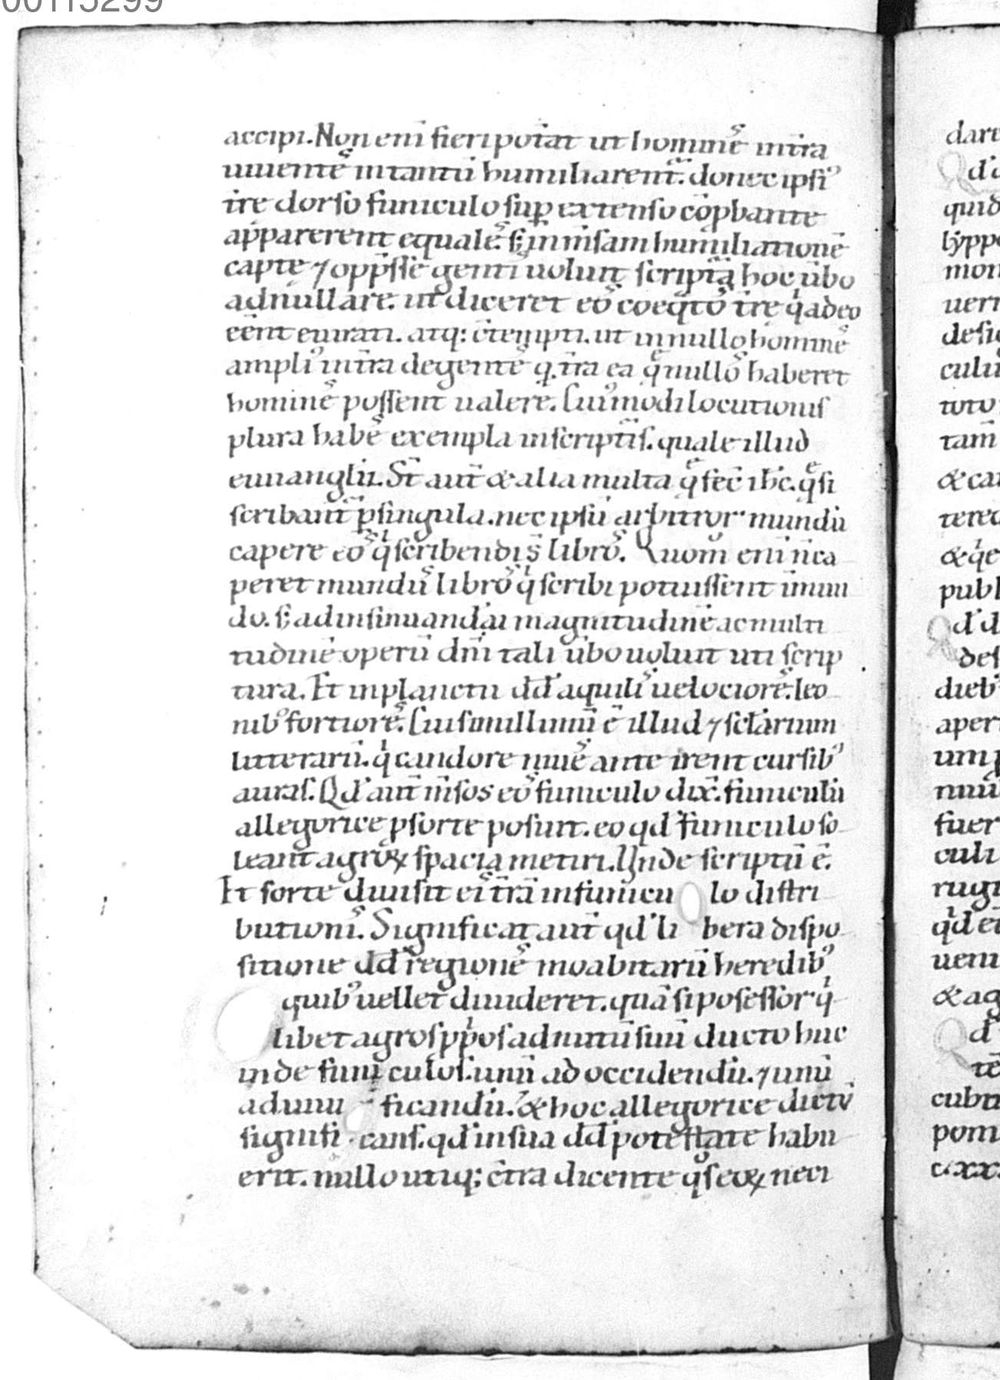 00115299
accipi. Non eni̅ fieri potat ut homine᷒ in t̅ra
uiuente᷒ in tantu̅ humiliarent᷑. donec ipsi᷒
t̅re dorso funiculo sup̱ extenso co̅p̱bante
apparerent equale᷒. s; inm̅sam humiliatione̅
captę ⁊ opp̅sse̅ genti᷒ uoluit script᷑a hoc u̅bo
adnullare. ut diceret eo᷒ coeq̅to᷒ t̅re qͥ adeo
ee̅nt euirati. atq: c̅tempti. ut in nullo homine᷒
ampli᷒ in t̅ra degente᷒ q. c̅tra ea q̅ nullo᷒ haberet
homine᷒ possent ualere. Cui᷒modi locutionis
plura habe᷒ exempla in scriptu̅is. quale illud
euuanglii. St̅ aut̅ & alia multa q̅ fec̅ ih̅c. q̅ si
scribant᷑ p̱ singula. nec ipsu̅ arbitror mundu̅
capere eo᷒ qͥ scribendi s̅ libro᷒. Quom̅ eni̅ n̅ ca
peret mundu᷒ libro᷒ qͥ scribi potuissent in mun
do. s; ad insinuanda̅ magnitudine̅ ac multi
tudine̅ operu̅ dn̅i tali u̅bo uoluit uti scrip
tura. Et in planctu dd̅ aquili᷒ uelociore᷒. leo
nib᷒ fortiore᷒. Cui simillimu̅ e̅ illud ⁊ scl̅arium
litteraru̅. qͥ candore niue᷒ ante irent cursib᷒
auras. Qd̅ aut̅ m̅sos eo᷒ funiculo dix̅. funiculu̅
allegorice p̱ sorte posuit. eo qd̅ funiculo so
leant agroꝝ spacia metiri. Unde scriptu̅ e̅.
Et sorte diuisit ei᷒ t̅ra̅ in funicu lo distri
butioni᷒. Significat aut̅ qd̅ li bera dispo
sitione dd̅ regione᷒ moabitaru̅ heredib᷒
quib᷒ uellet diuideret. qua̅ si posessor qͥ
libet agros p̱pos ad nutu̅ suu̅ ducto huc
inde funi culos. unu̅ ad occidendu̅. ⁊ unu̅
ad uiui ficandu̅. & hoc allegorice dictu̅
signifi cans. qd̅ in sua dd̅ potestate habu
erit. nullo utiq; c̅tra dicente qͦs eoꝝ neci